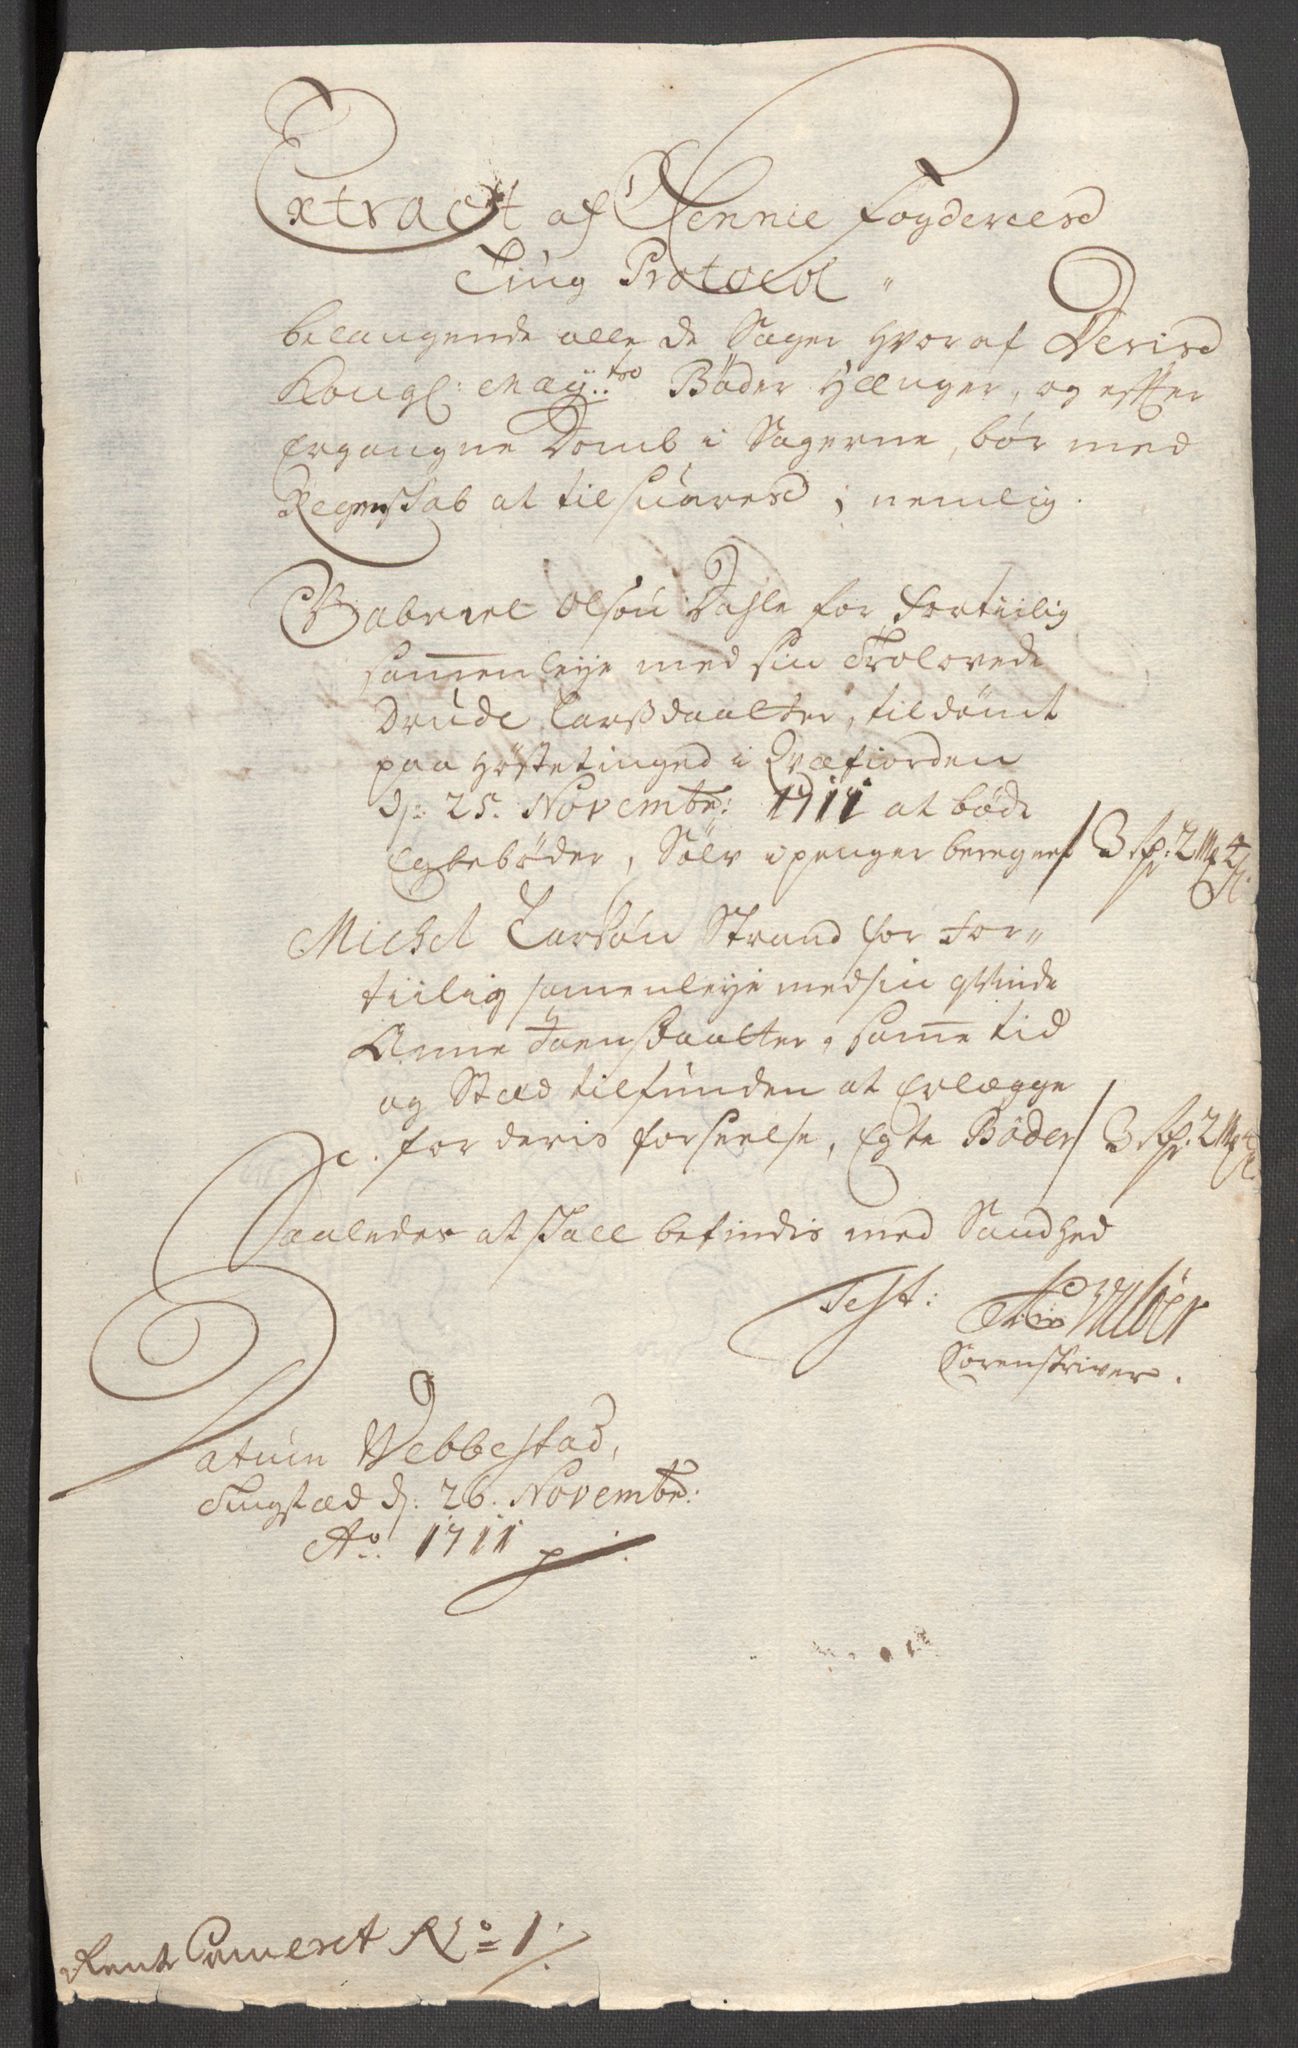 Extract af Sennie Fogderiesd
Ting Protocol
belangende alle de Sager hvoraf Derisd
Kongl: May:tts Böder hænger, og effter
Ergangne Domb i Sagerne, bør med
Regenskab at tilsuaresd; nemlig.
Gabriel Olsøn Dahle for fortiilig
sammenleye med sin Trolovede
Drude Larsdaatter, tildømt
paa Høstetinged i Qvæfiorden
d: 25. Novembr: 1711 at bøde
Egtebøder, Sölv i penger beregnet 3 rp: 2 Mk 4 s.
Michel Larsøn Strand for for-
tiilig samenleye med sin qvinde
Anne Joensdaatter, samme tid
og Stæd tilfunden at Erlægge
for deris forseelse, Egte Böder 3 rp: 2 Mk 4 s.
Saaledes at skall befindis med Sandhed
Test:
Sorenskriver.
Datum Webbestad,
Tingstæd d: 26. Novembr:
Ao. 1711
Rente Cameret No 1